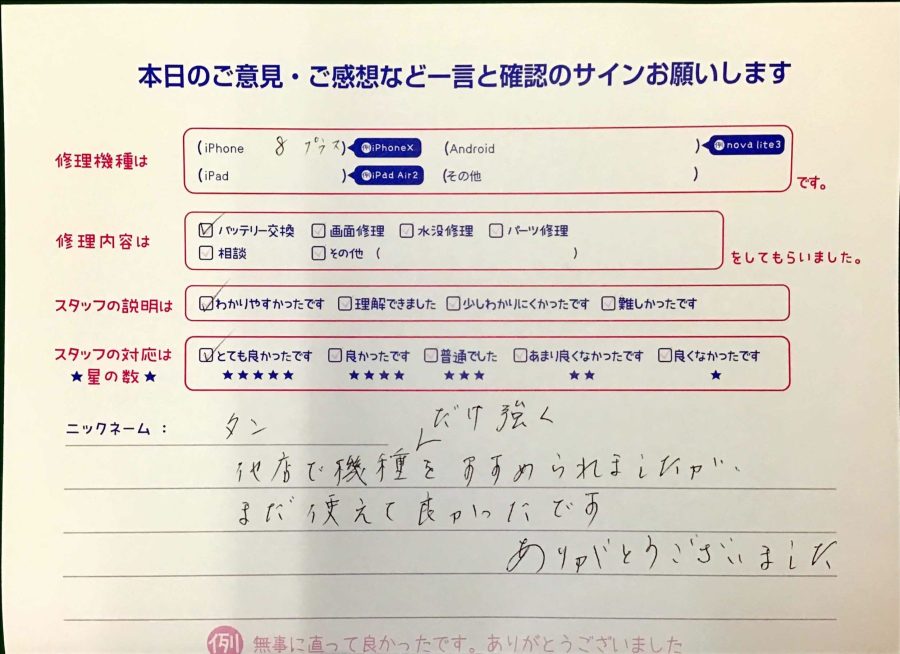 本日のご意見・ご感想など一言と確認のサインお願いします
修理機種は (iPhone 8 プラス) 例iPhoneX (Android ) 例nova lite3
(iPad ) 例iPad Air2 (その他 ) です。
修理内容は バッテリー交換 画面修理 水没修理 パーツ修理
相談 その他 ( ) をしてもらいました。
スタッフの説明は わかりやすかったです 理解できました 少しわかりにくかったです 難しかったです
スタッフの対応は とても良かったです 良かったです 普通でした あまり良くなかったです 良くなかったです
★星の数★ ★★★★★ ★★★★ ★★★ ★★ ★
ニックネーム: タン
だけ強く
他店で機種をすすめられましたが、
まだ使えて良かったです
ありがとうございました
例 無事に直って良かったです。ありがとうございました